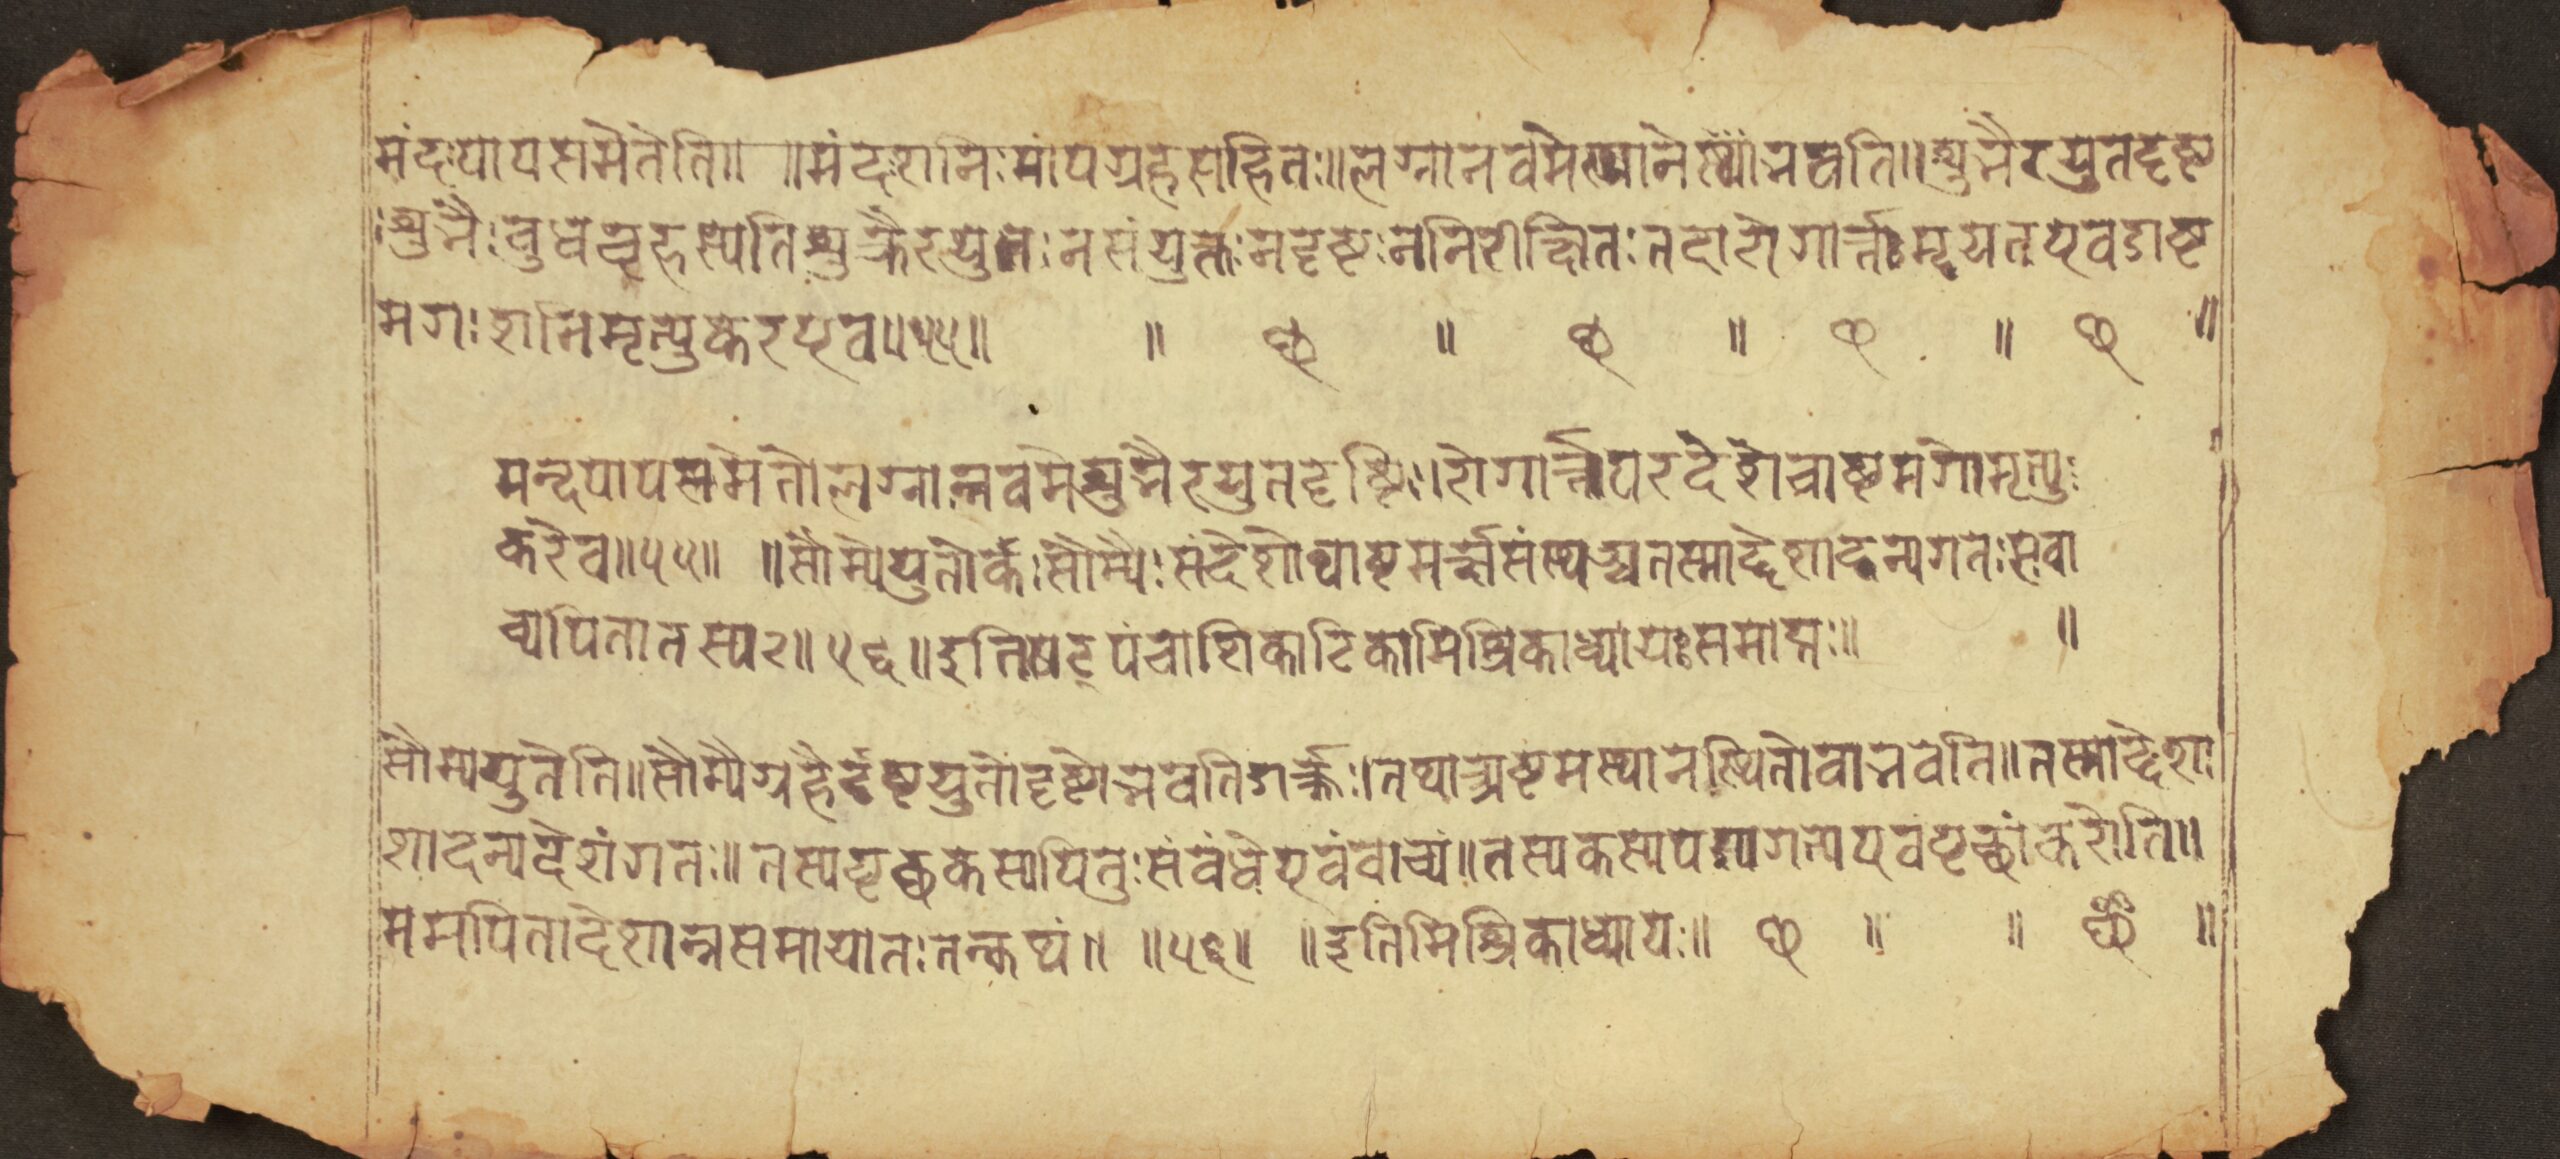 मंदःपापसमेतेति॥ ॥मंदःशनिःपापग्रहसहितः॥लग्नानवमेस्थानेस्थोभवति॥शुभैरयुतदृष्ट
शुभैःबुधबृहस्पतिशुक्रैरयुतःनसंयुक्तःनदृष्टःननिरीक्षितःतदारोगार्त्तःमृयतएवगाष्ट
मगःशनिमृत्युकरएव॥५५॥ ॥ छ ॥ छ ॥ छ ॥ छ ॥
मन्दपापसमेतोलग्नान्नवमेशुभैरयुतदृष्टिः।रोगार्त्तपरदेशेचाष्टमगोमृत्युः
करेव॥५५॥ ॥सौम्येयुतोर्कःसौम्यैःसंदेशोथाष्टमर्क्षसंस्थश्चतस्माद्देशादन्यगतःसवा
च्यपितातस्यर॥५६॥इतिषट्पंचाशिकाटिकामिश्रिकाध्यायःसमाप्तः॥ ॥
सौम्ययुतेति॥सौम्यैग्रहैर्दृष्टयुतोदृष्टोभवतिगर्क्कः।तथाअष्टमस्थानेस्थितोवाभवेति॥तस्माद्देशा
शादन्यदेशंगतः॥तस्यपृछकस्यपितुःसंबंधेएवंवाच्यं॥तस्यकस्यपद्मागत्यएवंपृछांकरोति॥
ममपितादेशान्नसमायातःतत्कथं॥ ॥५६॥ ॥इतिमिश्रिकाध्यायः॥ छ ॥ ॥ छ ॥